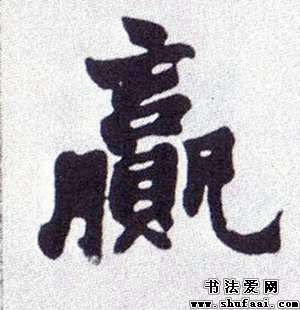 赢
书法爱网
www.shufaai.com